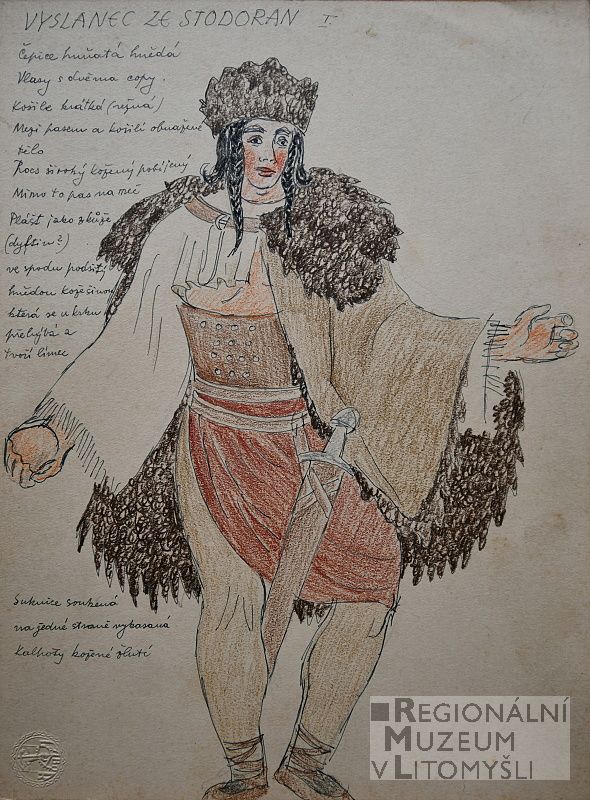 VYSLANEC ZE STODORAN I.
Čepice huňatá hnědá
Vlasy s dvěma copy.
Košile krátká (režná)
Mezi pasem a košilí obnažené
tělo
široký kožený pobíjený
Mimo to pas na meč
Plášť jako z kůže
(dyftin?)
ve spodu podšitý
hnědou kožešinou
která se u krku
přehýbá a
tvoří límec
Suknice soukená
na jedné straně vykasaná
Kalhoty kožené žluté
REGIONÁLNÍ
MUZEUM
V LITOMYŠLI